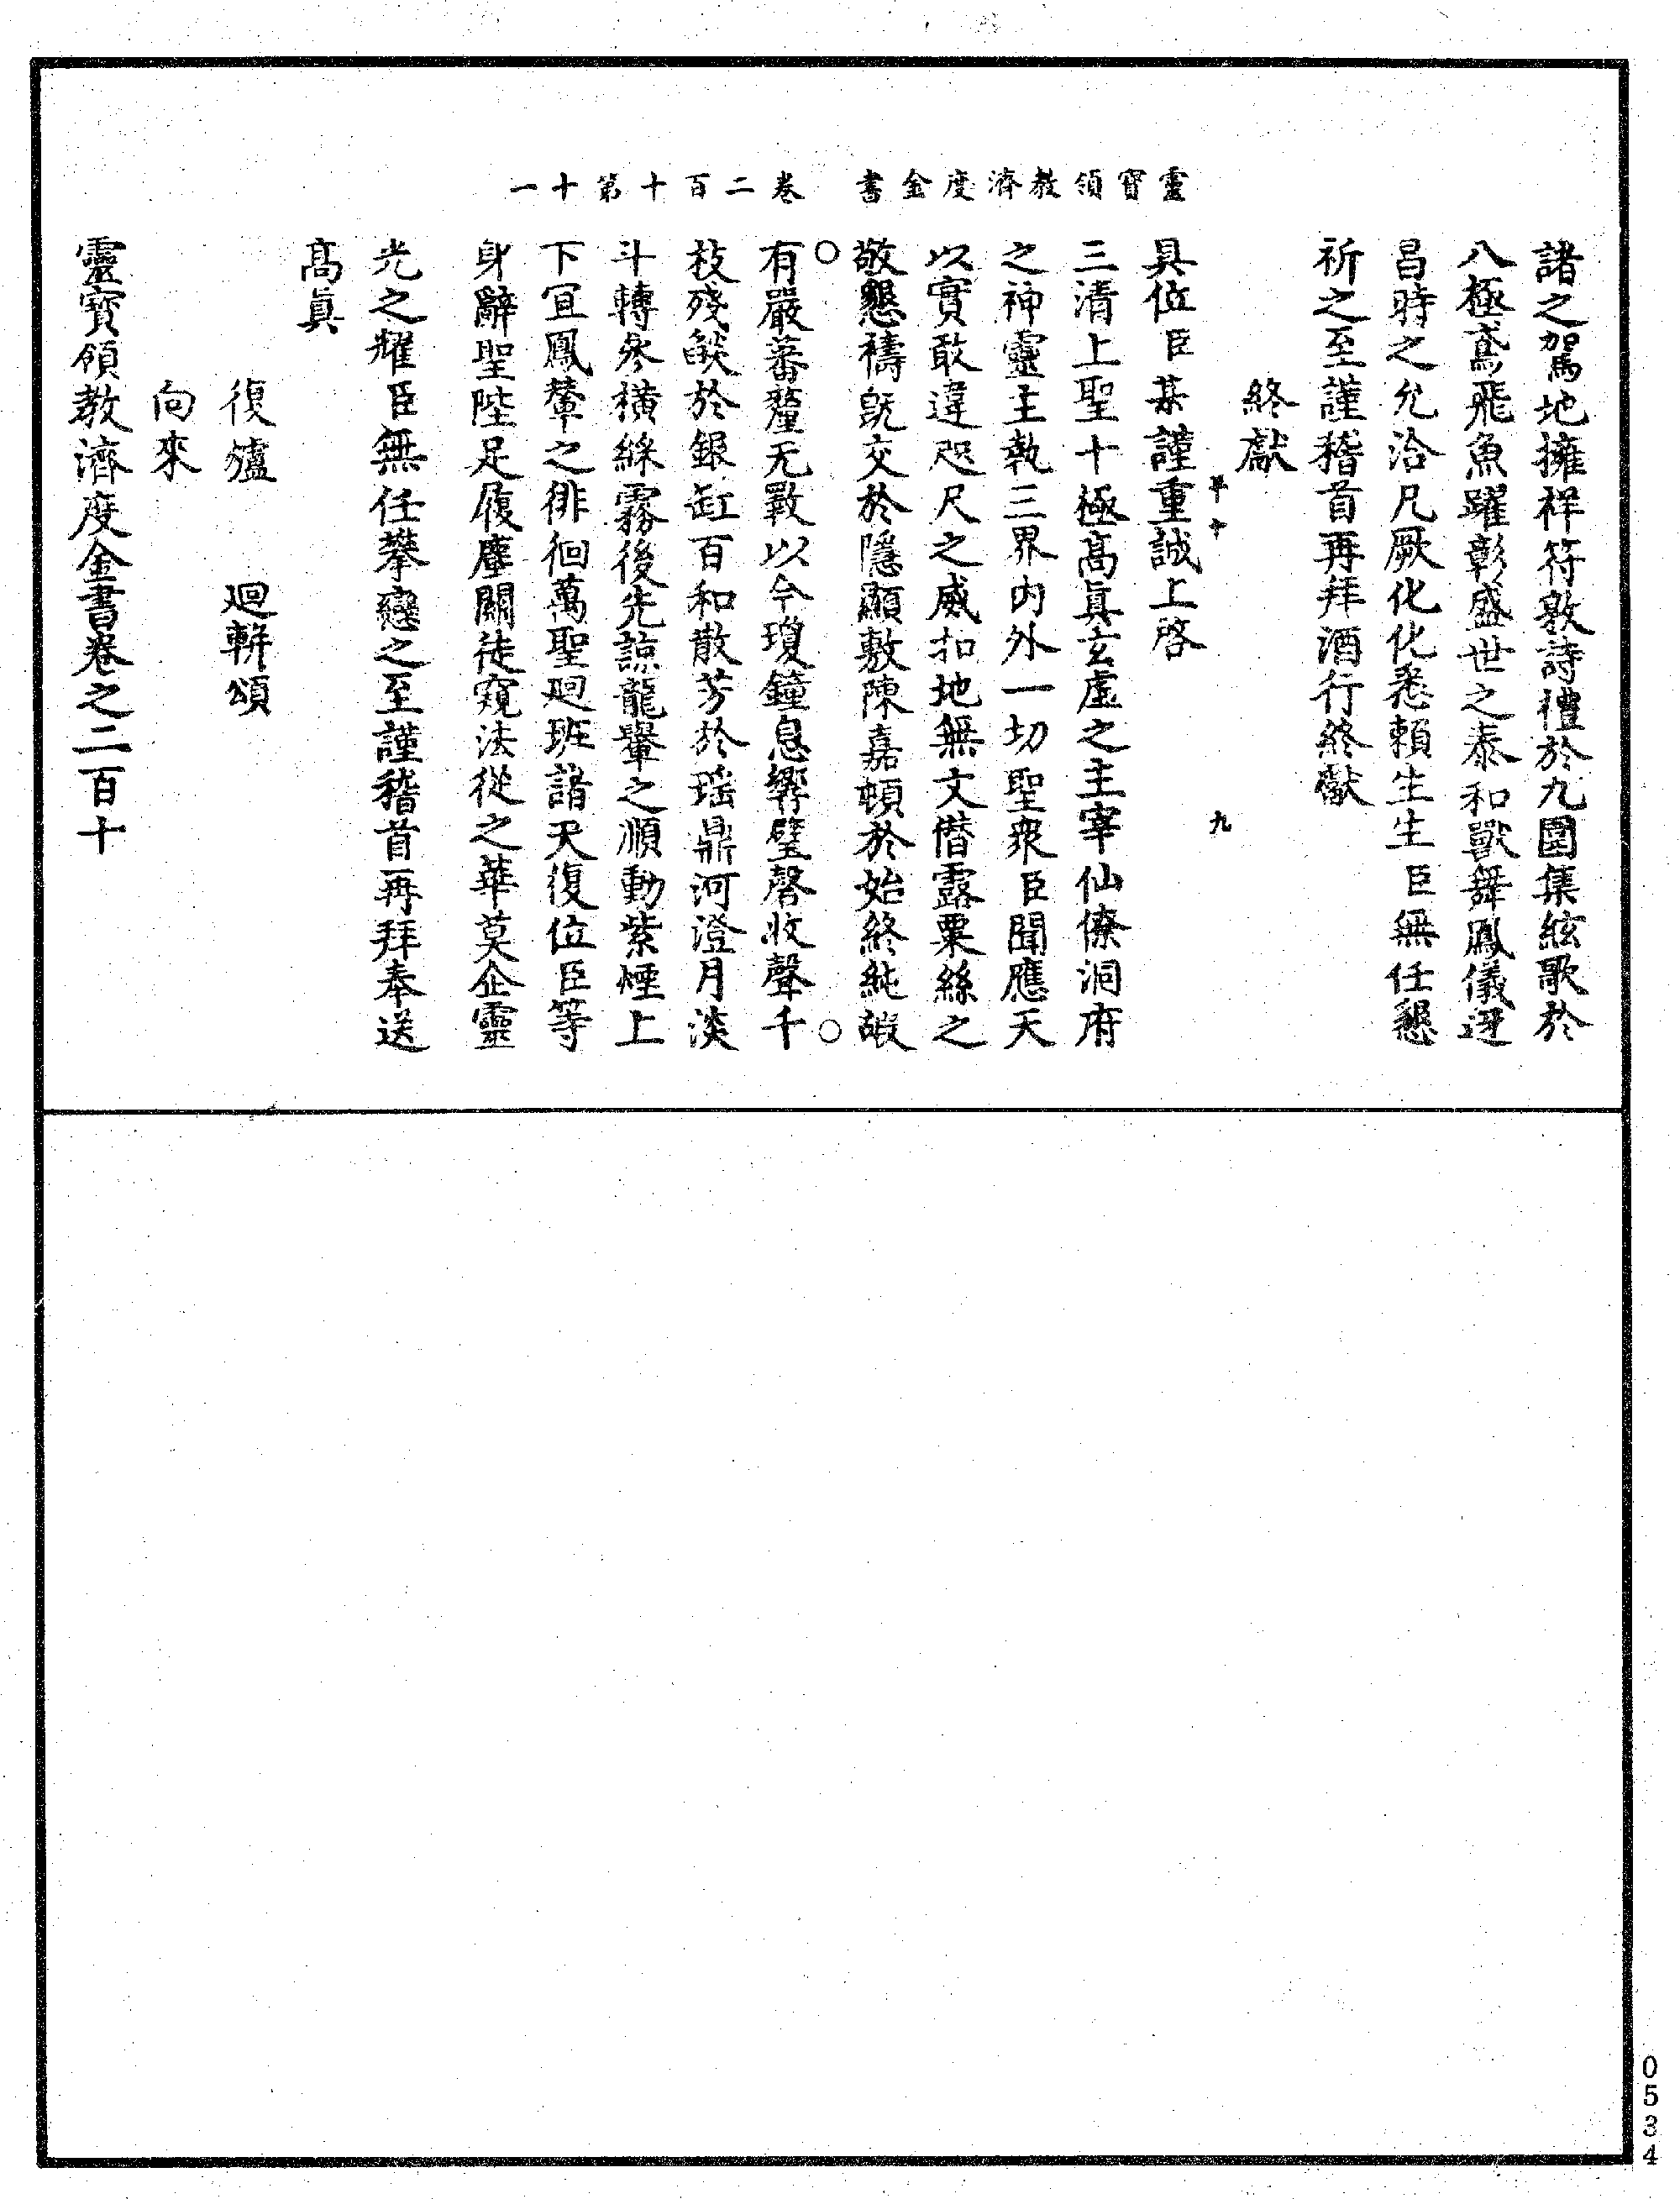 靈寶領教濟度金書　卷二百十第十一
諸之駕地擁祥符敦詩禮於九圍集絃歌於
八極鳶飛魚躍彰盛世之泰和獸舞鳳儀迓
昌時之允洽凡厥化化悉賴生生臣無任懇
祈之至謹稽首再拜酒行終獻
終獻
九
具位臣某謹重誠上啓
三清上聖十極高眞玄虛之主宰仙僚洞府
之神靈主執三界內外一切聖衆臣聞應天
以實敢違咫尺之威扣地無文僭露粟絲之
敬懇禱旣交於隱顯敷陳嘉頓於始終純嘏
○　○
有嚴蕃釐无斁以今瓊鐘息響璧磬收聲千
枝殘燄於銀缸百和散芳於瑶鼎河澄月淡
斗轉參橫綵霧後先諒龍轝之順動紫煙上
下冝鳳輦之徘徊萬聖廻班諸天復位臣等
身辭聖陛足履塵關徒窺法從之華莫企靈
光之耀臣無任攀戀之至謹稽首再拜奉送
高眞
復爐　廻軿頌
向來
靈寳領教濟度金書卷之二百十
0534